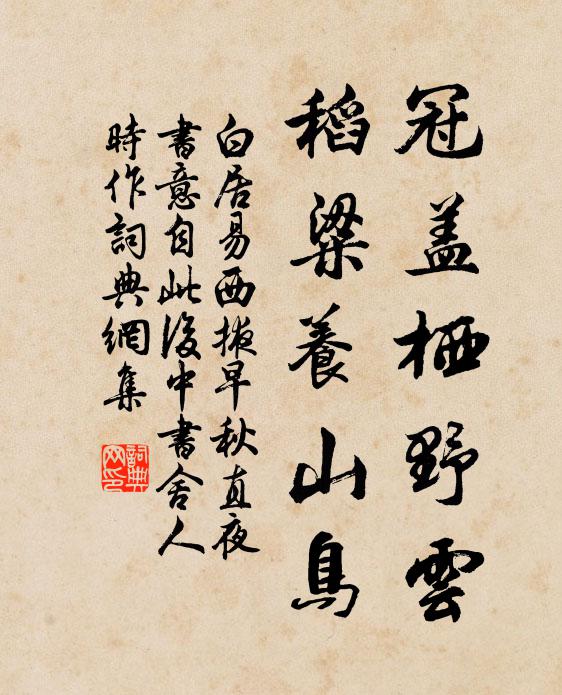 冠盖栖野雲
稻粱養山鳥
白居易西掖早秋直夜
書意自此後中書舍人
時作詞典網集
詞典
网印